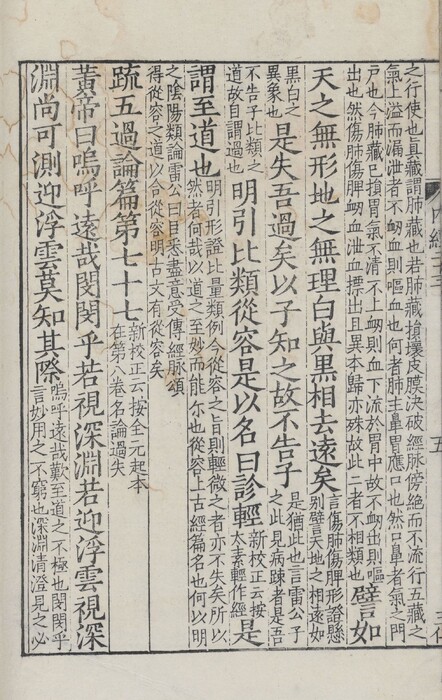 之行使也真藏謂肺藏也若肺藏損壞皮膜決破經脉傍絶而不流行五藏之
氣上溢而漏泄者不衂血則嘔血也何者肺主鼻胃應口也然口鼻者氣之門
戸也今肺藏巳損胃氣不清不上衂則血下流於胃中故不衂出則嘔
出也然傷肺傷脾衂血泄血摽出且異本歸亦殊故此二者不相類也
譬如
天之無形地之無理白與黑相去遠矣
言傷肺傷脾形證懸
別譬天地之相遠如
黑白之
異象也
是失吾過矣以子知之故不告子
是猶此也言雷公子
之此見病踈者是吾
不告子比類之
道故自謂過也
明引比類從容是以名曰診輕
新校正云按
太素輕作經
是
謂至道也
明引形證比量類例今從容之旨則輕微之者亦不失矣所以
然者何哉以道之至妙而能尓也從容上古經篇名也何以明
之陰陽類論雷公曰臣悉盡意受傳經脉頌
得從容之道以合從容明古文有從容矣
疏五過論篇第七十七
新校正云按全元起本
在第八卷名論過失
黃帝曰嗚呼遠哉閔閔乎若視深淵若迎浮雲視深
淵尚可測迎浮雲莫知其際
嗚呼遠哉歎至道之不極也閔閔乎
言妙用之不窮也深淵清澄見之必
五